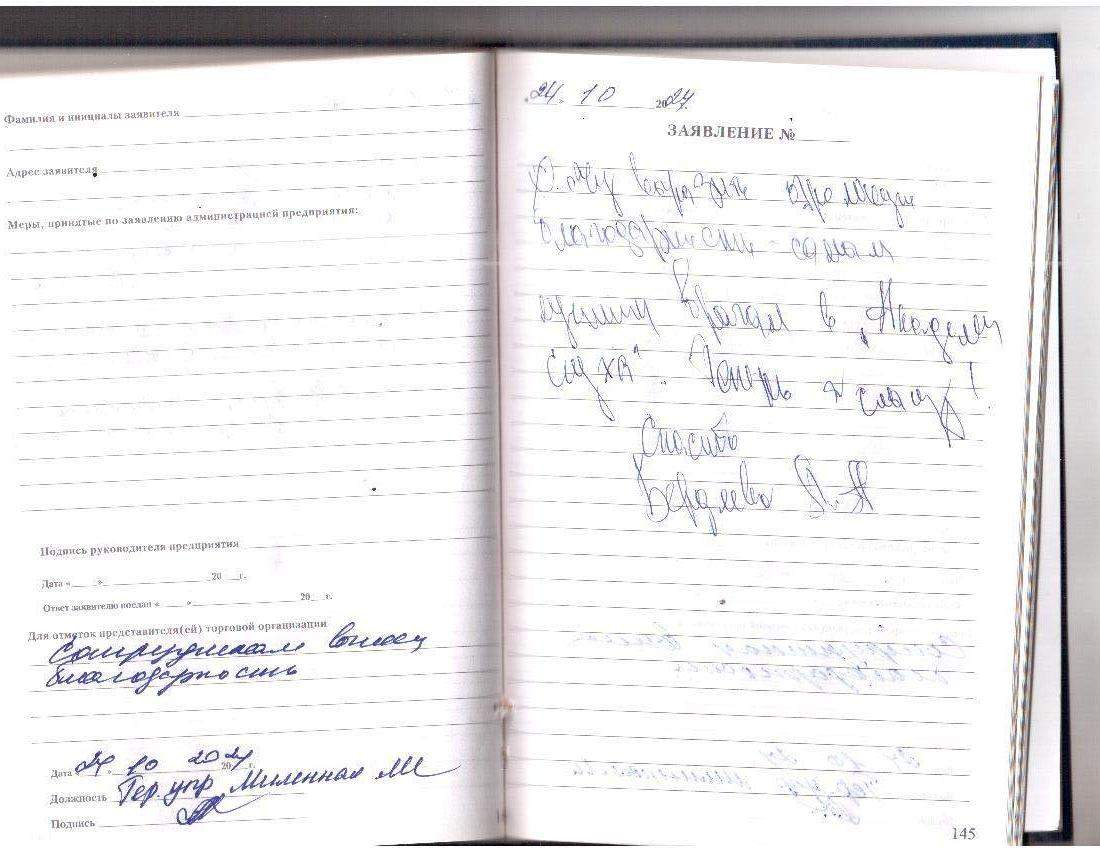 Фамилия и инициалы заявителя
Адрес заявителя
Меры, принятые по заявлению администрацией предприятия:
Подпись руководителя предприятия
Дата « » 20 г.
Ответ заявителю послан « » 20 г.
Для отметок представителя(ей) торговой организации
Сотрудникам вынести
благодарность
Дата 24 . 10 2024 20 г.
Должность Тер. упр Миленная
Подпись
24. 10 2024
ЗАЯВЛЕНИЕ №
Хочу выразить
благодарность самым
лучшим врачам в „Академии
слуха". Теперь я слышу!
Спасибо
145